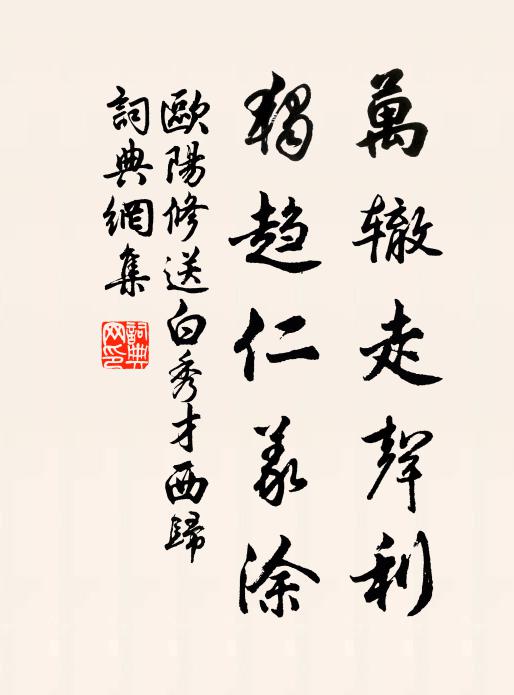 萬辙走聲利
獨趋仁義涂
歐陽修送白秀才西歸
詞典網集
詞典
网印